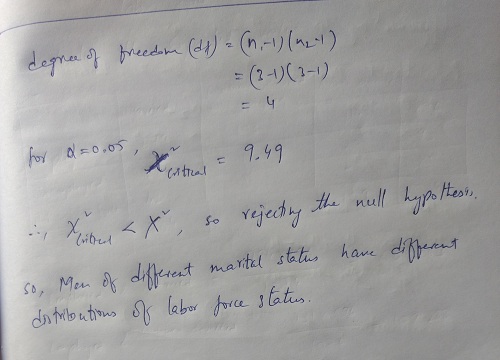 degree of freedom (df) = (n,-1) (n2-1)
= (3-1) (3-1)
= 4
for α=0.05, χ²critical = 9.49
∴, χ²critical < χ², so rejecting the null hypothesis.
so, Men of different marital status have different
distributions of labor force status.